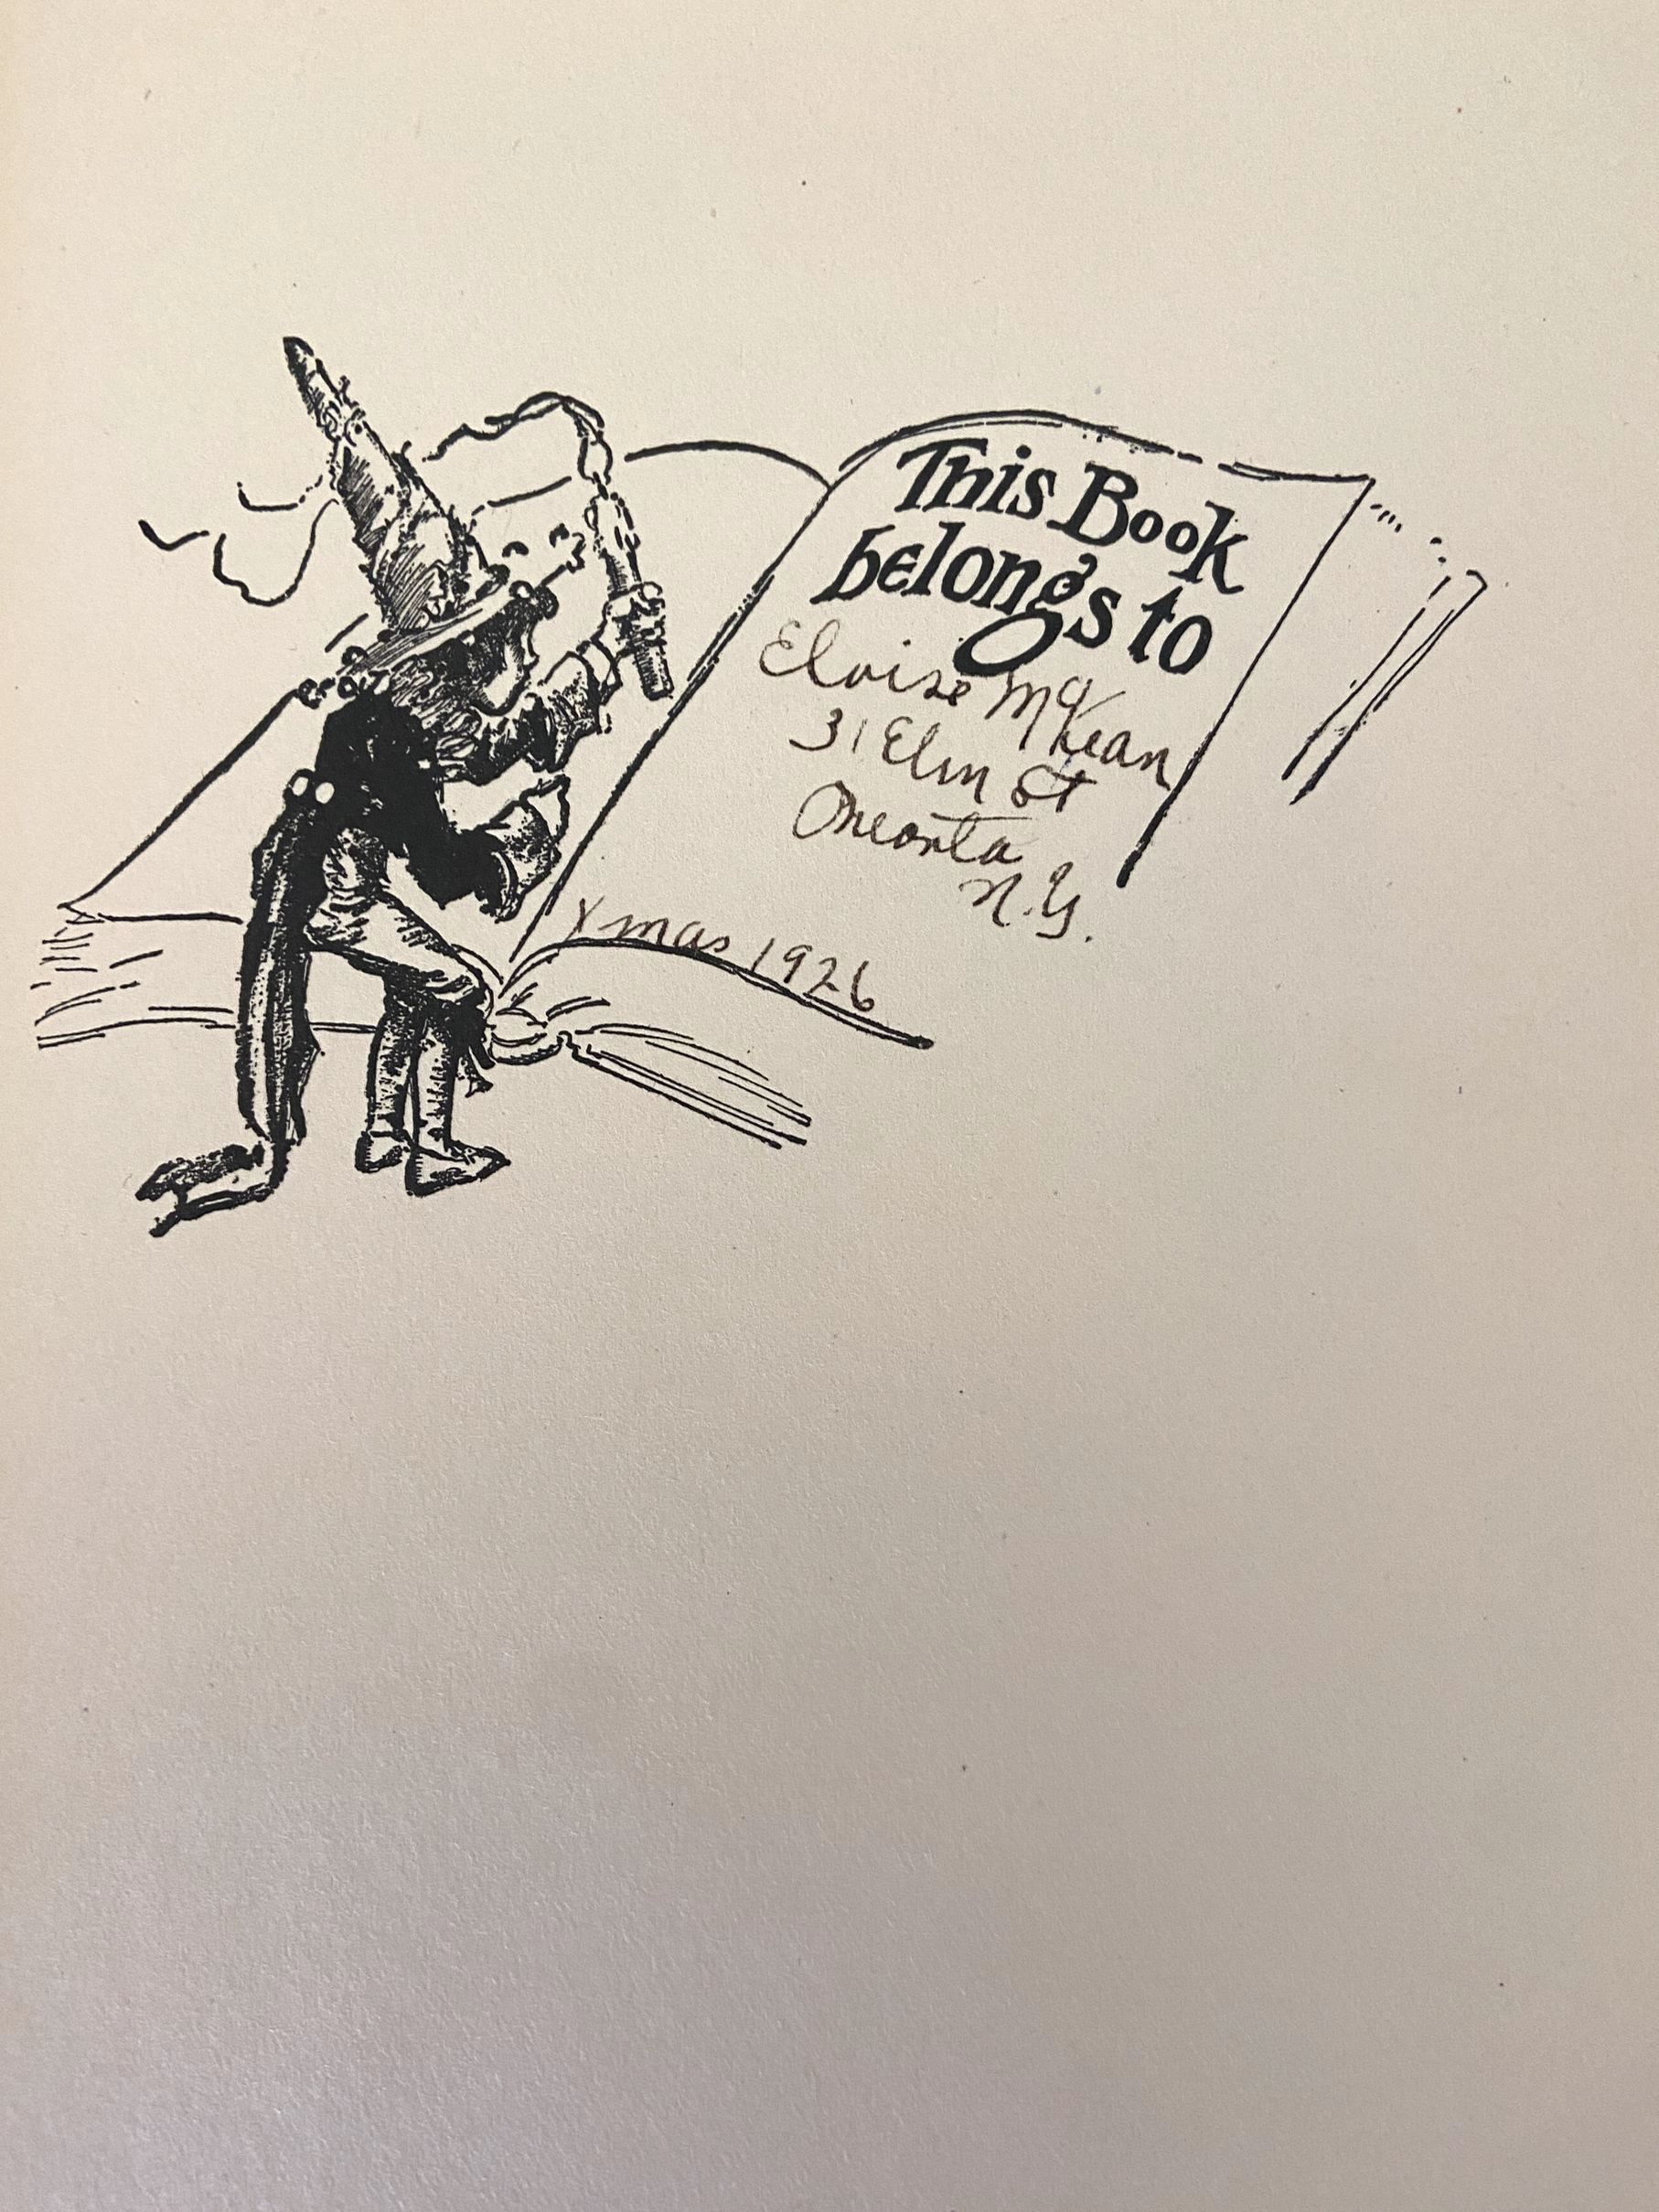 This Book
belongs to
Eloise McKean
31 Elm St
Oneonta
N.Y.
Xmas 1926